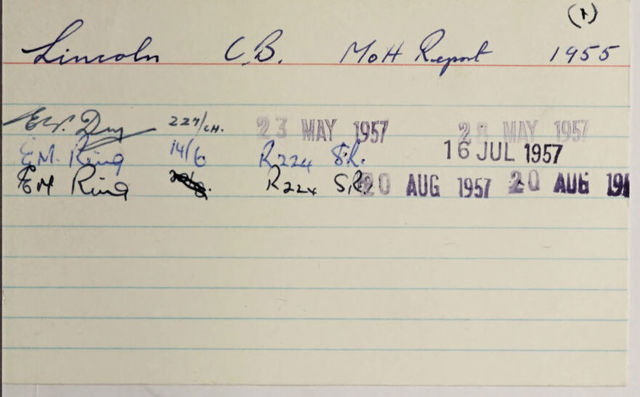 (1)
Lincoln C.B. MoH Report 1955
227/CH. 23 MAY 1957 MAY 1957
E.M. King 14/6 R224 S.R. 16 JUL 1957
EM King R224 S.R. 20 AUG 1957 20 AUG 19